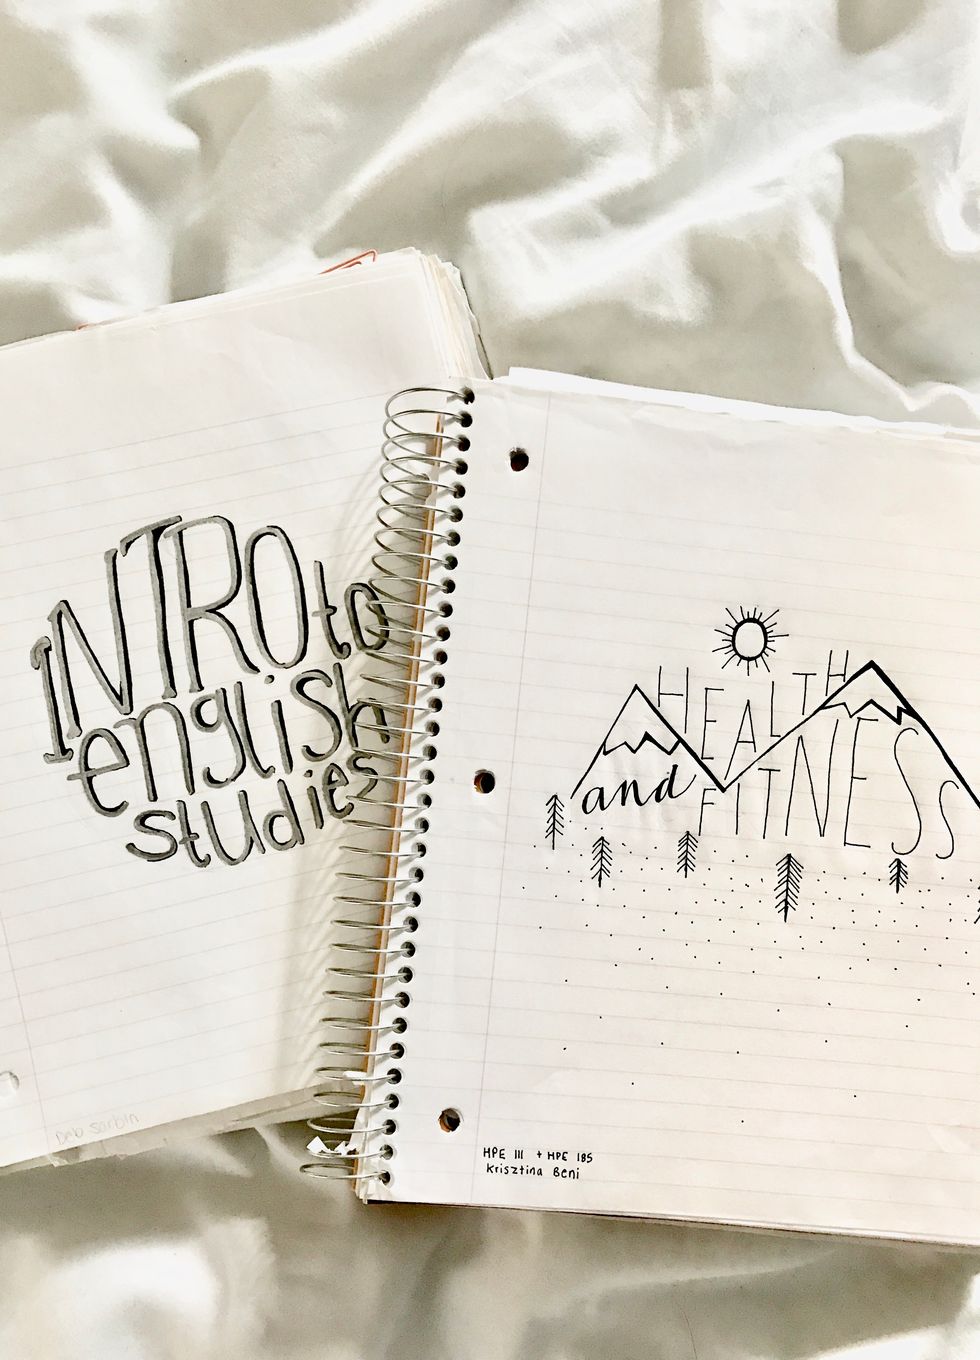 INTRO to
english
studies
Deb Sarbin
HEALTH
and FITNESS
HPE 111 + HPE 185
Krisztina Beni